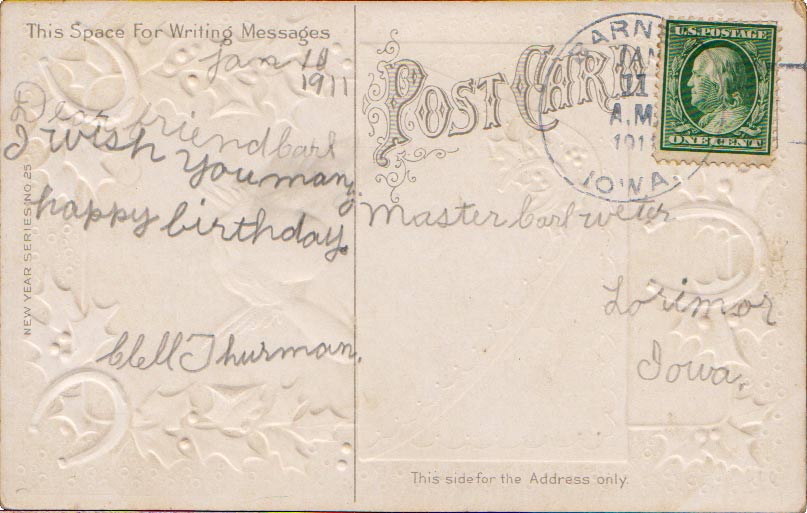 This Space For Writing Messages
Jan 10
1911
Dear friend Carl
I wish you many
happy birthday.
Clell Thurman.
NEW YEAR SERIES NO. 25
POST CARD
JAN
11
A.M.
IOWA.
U.S. POSTAGE
ONE CENT
Master Carl
Lorimor
Iowa.
This side for the Address only.